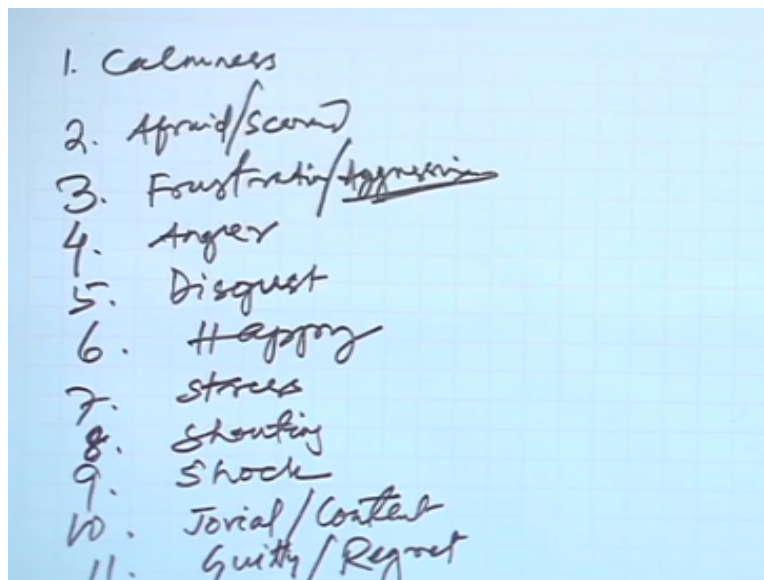 1. Calmness
2. Afraid/Scared
3. Frustration/Aggression
4. Anger
5. Disgust
6. Happy
7. Stress
8. Shouting
9. Shock
10. Jovial/Content
11. Guilty/Regret